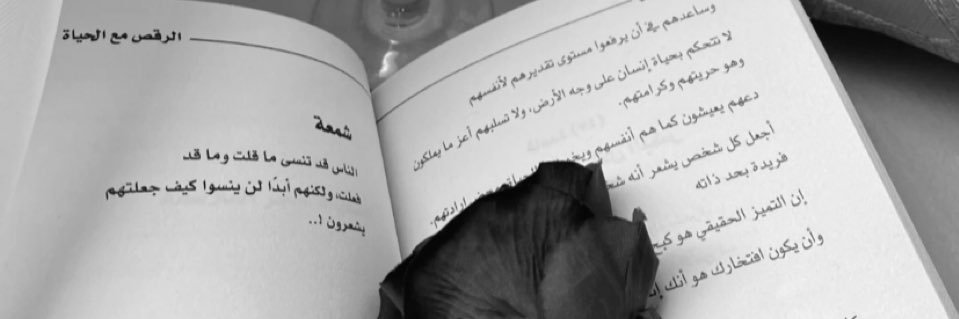 وساعدهم في أن يرفعوا مستوى تقديرهم لأنفسهم
لا تتحكم بحياة إنسان على وجه الأرض، ولا تسلبهم أعز ما يملكون
وهو حريتهم وكرامتهم.
دعهم يعيشون كما هم أنفسهم
إرادتهم.
أجعل كل شخص يشعر أنه
فريدة بحد ذاته
إن التميز الحقيقي هو
وأن يكون افتخارك هو أنك
الرقص مع الحياة
شمعة
الناس قد تنسى ما قلت وما قد
فعلت، ولكنهم أبدًا لن ينسوا كيف جعلتهم
يشعرون !..